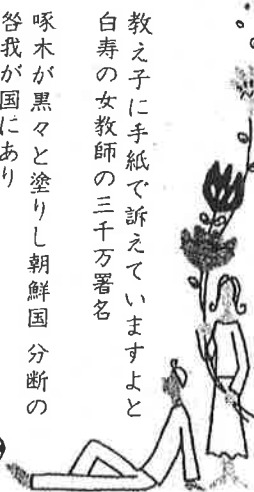 教え子に手紙で訴えていますよと
白寿の女教師の三千万署名
啄木が黒々と塗りし朝鮮国 分断の
咎我が国にあり